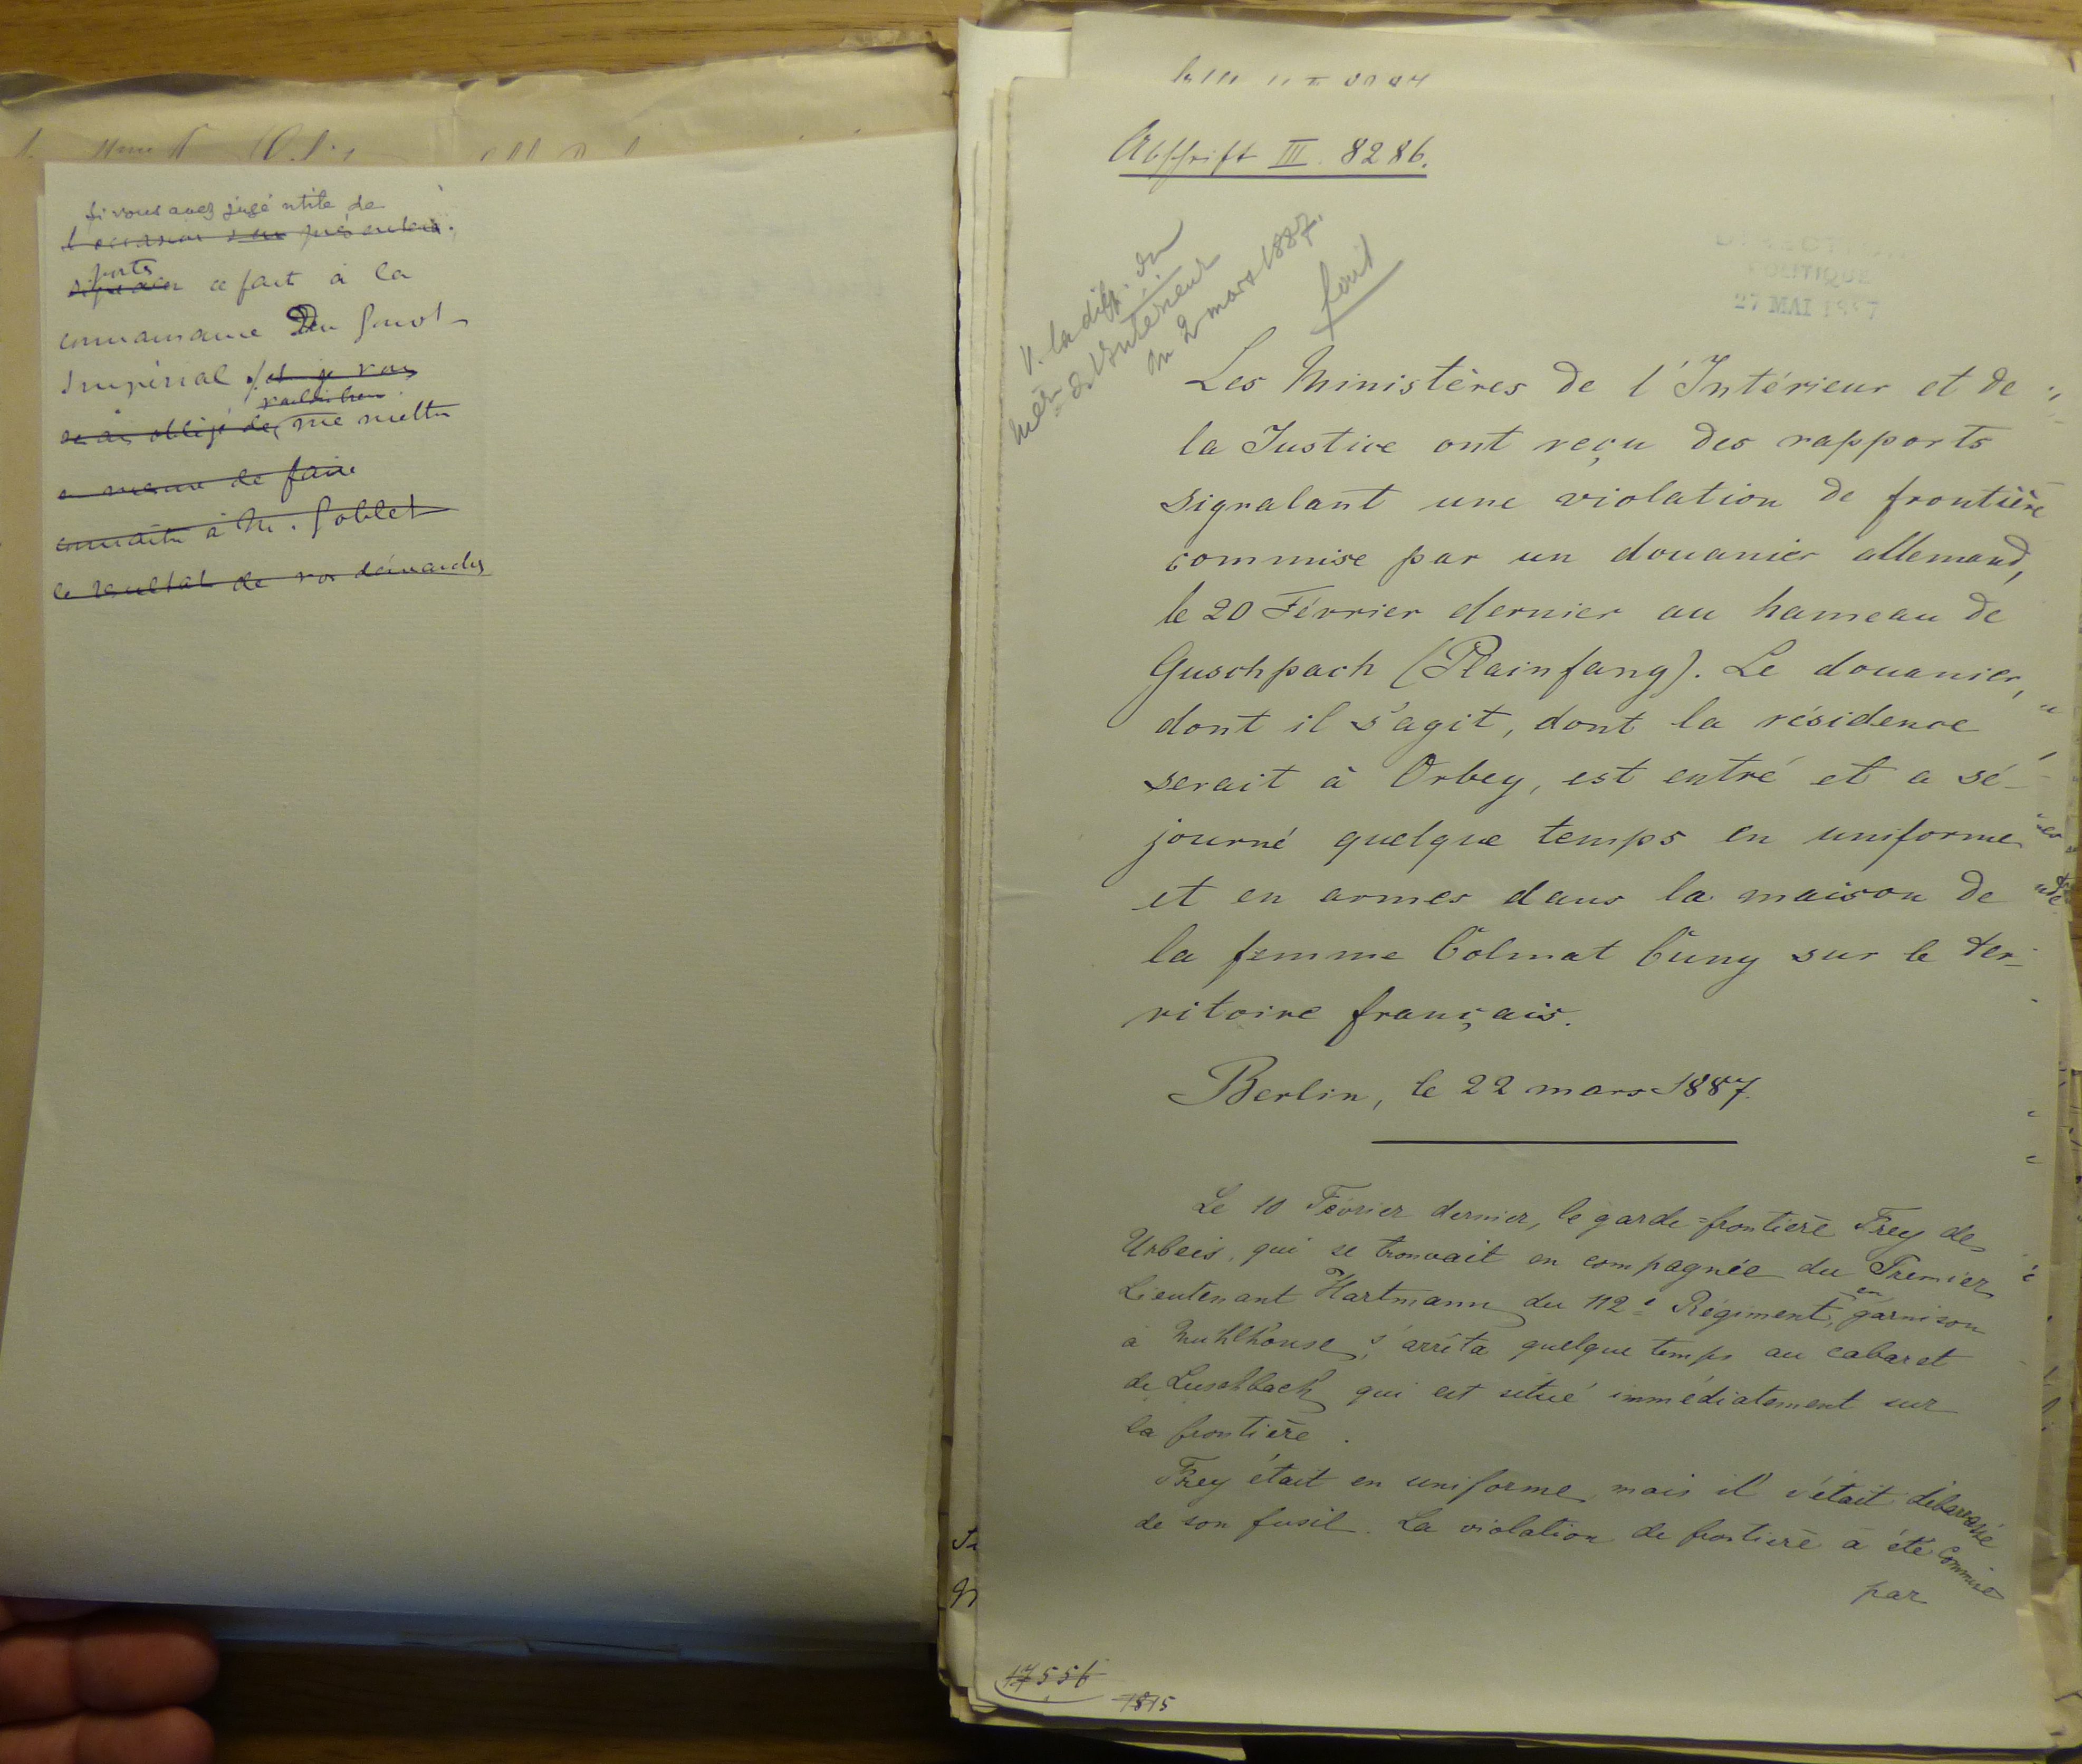 si vous avez jugé utile de
l'occasion s'en présentera.
porter
signaler ce fait à la
connaissance Du Gouvt
Impérial et je vous
serais obligé de me mettre
à même de faire
connaître à M. Goblet
le résultat de vos démarches
Abschrift III. 8286.
V. la dép. du
Mère de l'Intérieur
du 2 mars 1887.
DIRECTION
POLITIQUE
27 MAI 1887
Les Ministères de l'Intérieur et de
la Justice ont reçu des rapports
signalant une violation de frontière
commise par un douanier allemand,
le 20 Février dernier au hameau de
Guschpach (Plainfang). Le douanier,
dont il s'agit, dont la résidence
serait à Orbey, est entré et a sé-
journé quelque temps en uniforme
et en armes dans la maison de
la femme Colmat Cuny sur le ter-
ritoire français.
Berlin, le 22 mars 1887.
Le 10 Février dernier, le garde=frontière Frey de
Urbeis, qui se trouvait en compagnée du Premier
Lieutenant Hartmann du 112e Régiment, en garnison
à Muhlhouse, s'arrêta quelque temps au cabaret
de Luschbach qui est situé immédiatement sur
la frontière.
Frey était en uniforme, mais il s'était débarrassé
de son fusil. La violation de frontière a été commise
par
17556
1815